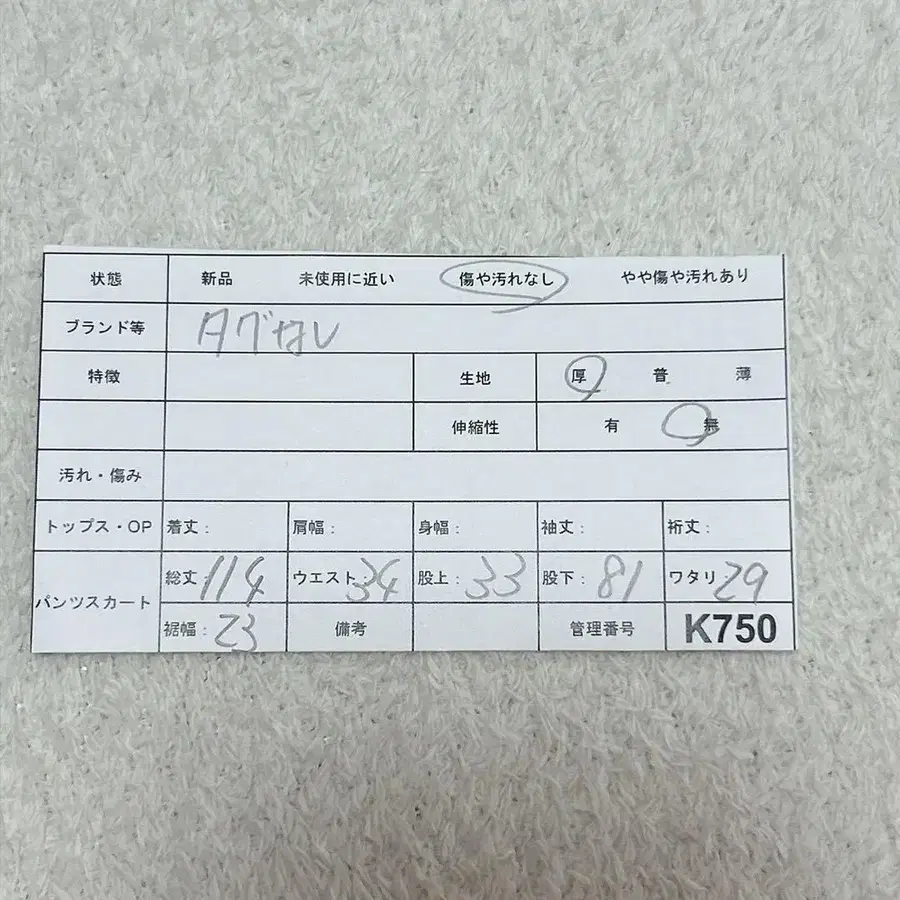 状態 新品 未使用に近い 傷や汚れなし やや傷や汚れあり
ブランド等 タグなし
特徴 生地 厚 普 薄
伸縮性 有 無
汚れ・傷み
トップス・OP 着丈: 肩幅: 身幅: 袖丈: 裄丈:
パンツスカート 総丈:114 ウエスト:34 股上:33 股下:81 ワタリ:29
裾幅:23 備考 管理番号 K750